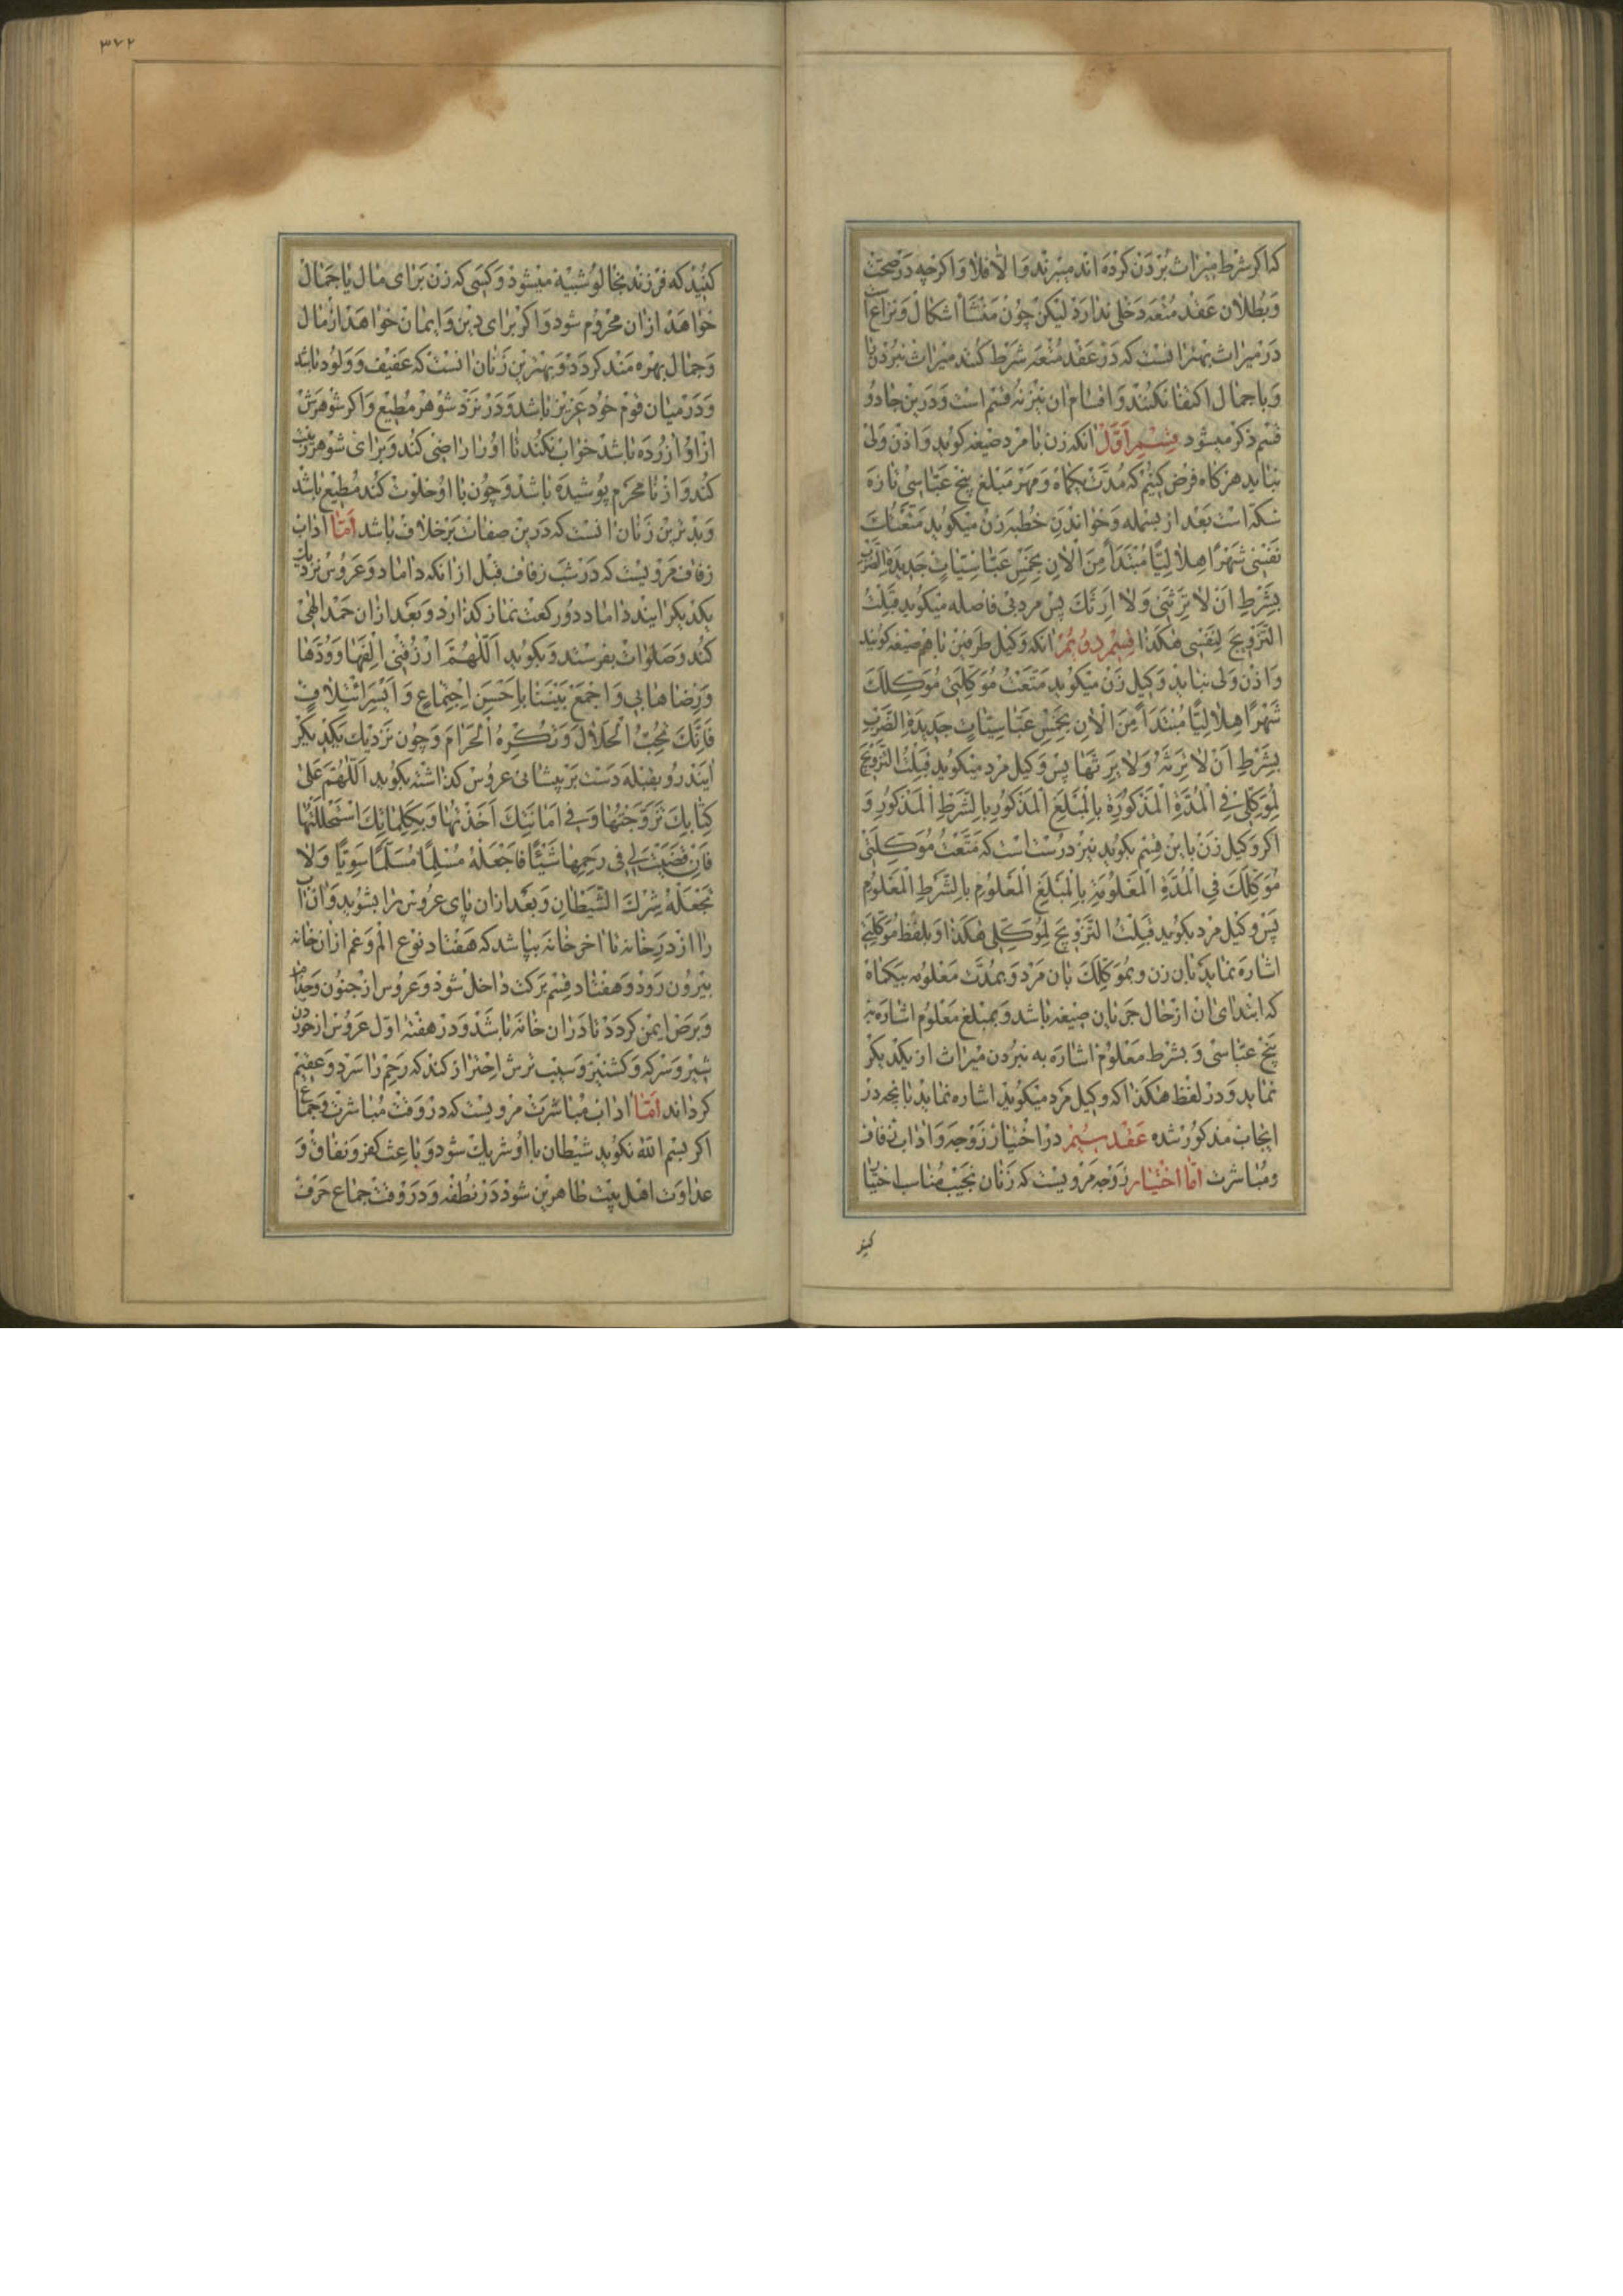 که اکر شرط میراث بردن کرده اند میبرند و الا فلا و اکرچه در صحت
و بطلان عقد متعه دخلی ندارد لیکن چون منشأ اشکال و نزاعست
در میراث بهتر انست که در عقد متعه شرط کنند میراث نبردن را
و باجمال اکتفا نکنند و اقسام ان نیز نه قسم است و درین جا دو
قسم ذکر میشود قسم اول انکه زن با مرد صیغه کوید و اذن ولی
نباید هرکاه فرض کنیم که مدت یکماه و مهر مبلغ پنج عباسی تازه
سکه است بعد از بسمله و خواندن خطبه زن میکوید متعتک
نفسی شهرا هلالیا مبتدأ من الان بخمس عباسیات جدیدة الضرب
بشرط ان لا ترثنی ولا ارثک پس مرد بی فاصله میکوید قبلت
التزویج لنفسی هکذا قسم دویم انکه وکیل طرفین با هم صیغه کویند
و اذن ولی نباید وکیل زن میکوید متعت موکلتی موکلک
شهرا هلالیا مبتدأ من الان بخمس عباسیات جدیدة الضرب
بشرط ان لا ترثه ولا یرثها پس وکیل مرد میکوید قبلت التزویج
لموکلی فی المدة المذکورة بالمبلغ المذکور بالشرط المذکور و
اکر وکیل زن باین قسم بکوید نیز درست است که متعت موکلتی
موکلک فی المدة المعلومة بالمبلغ المعلوم بالشرط المعلوم
پس وکیل مرد بکوید قبلت التزویج لموکلی هکذا و بلفظ موکلتی
اشاره نماید بان زن و بموکلک بان مرد و بمدت معلومه بیکماه
که ابتدای ان از حال جریان صیغه باشد و بمبلغ معلوم اشاره به
پنج عباسی و بشرط معلوم اشاره به نبردن میراث از یکدیکر
نماید و در لفظ هکذا که وکیل مرد میکوید اشاره نماید بانچه در
ایجاب مذکور شده عقد سیم در اختیار زوجه و اداب زفاف
و مباشرت اما اختیار زوجه مرویست که زنان نجیب مناسب اختیار
کنید
۳۷۲
کنید که فرزند بخالو شبیه میشود و کسی که زن برای مال یا جمال
خواهد ازان محروم شود و اکر برای دین و ایمان خواهد از مال
و جمال بهره مند کردد و بهترین زنان انست که عفیف و ولود باشد
و در میان قوم خود عزیز باشد و در نزد شوهر مطیع و اکر شوهرش
از او ازرده باشد خواب نکند تا او را راضی کند و برای شوهر زینت
کند و از نامحرم پوشیده باشد و چون با او خلوت کند مطیع باشد
و بدترین زنان انست که درین صفات برخلاف باشد اما اداب
زفاف مرویست که در شب زفاف قبل از انکه داماد و عروس نزدیک
یکدیکر ایند داماد دو رکعت نماز کذارد و بعد ازان حمد الهی
کند و صلوات بفرستد و بکوید اللهم ارزقنی الفها و ودها
و رضاها بی و اجمع بیننا باحسن اجتماع و ایسر ائتلاف
فانک تحب الحلال و تکره الحرام و چون نزدیک یکدیکر
ایند رو بقبله دست بر پیشانی عروس کذاشته بکوید اللهم علی
کتابک تزوجتها و فی امانتک اخذتها و بکلماتک استحللتها
فان قضیت لی فی رحمها شیئا فاجعله مسلما مسلما سویا ولا
تجعله شرک الشیطان و بعد ازان پای عروس را بشوید و ان اب
را از در خانه تا اخر خانه بپاشد که هفتاد نوع الم و غم ازان خانه
بیرون رود و هفتاد قسم برکت داخل شود و عروس از جنون و جذام
و برص ایمن کردد تا دران خانه باشد و در هفته اول عروس از خوردن
شیر و سرکه و کشنیز و سیب ترش احتراز کند که رحم را سرد و عقیم
کرداند اما اداب مباشرت مرویست که در وقت مباشرت و جماع
اکر بسم الله نکوید شیطان با او شریک شود و باعث کفر و نفاق و
عداوت اهل بیت طاهرین شود در نطفه و در وقت جماع حرف